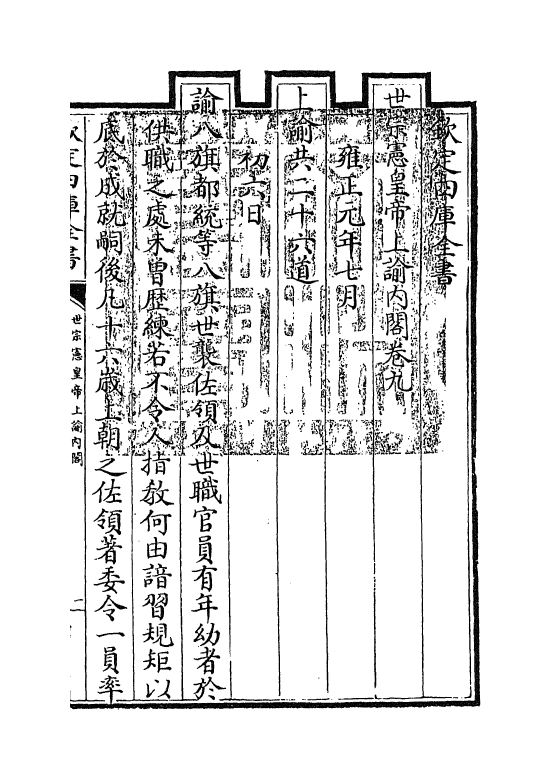 欽定四庫全書
世宗憲皇帝上諭内閣卷九
雍正元年七月
上諭共二十六道
初六日
諭八旗都統等八旗世襲佐領及世職官員有年幼者於
供職之處未曾歴練若不令人指教何由諳習規矩以
底於成就嗣後凡十六歲上朝之佐領著委令一員率
欽定四庫全書
世宗憲皇帝上諭内閣